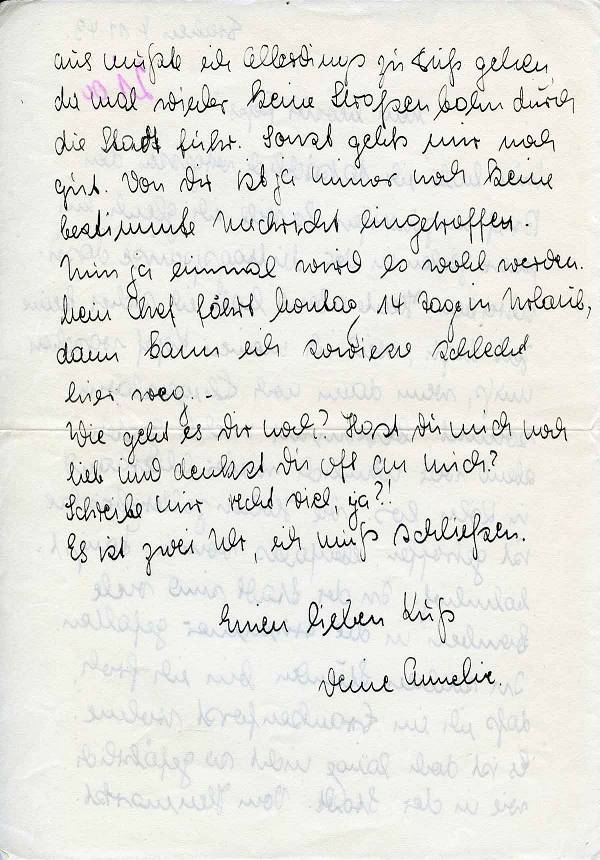 aus mußte ich allerdings zu Fuß gehen
da mal wieder keine Straßenbahn durch
die Stadt fuhr. Sonst gehts mir noch
gut. Von dir ist ja immer noch keine
bestimmte Nachricht eingetroffen.
Nun ja einmal wird es wohl werden.
Mein Chef fährt Montag, 14 Tage in Urlaub,
dann kann ich sowieso schlecht
hier weg. -
Wie geht es Dir noch? Hast du mich noch
lieb und denkst Du oft an mich?
Schreibe mir recht viel, ja?!
Es ist zwei Uhr, ich muß schließen.
Einen lieben Kuß
Deine Annelie.